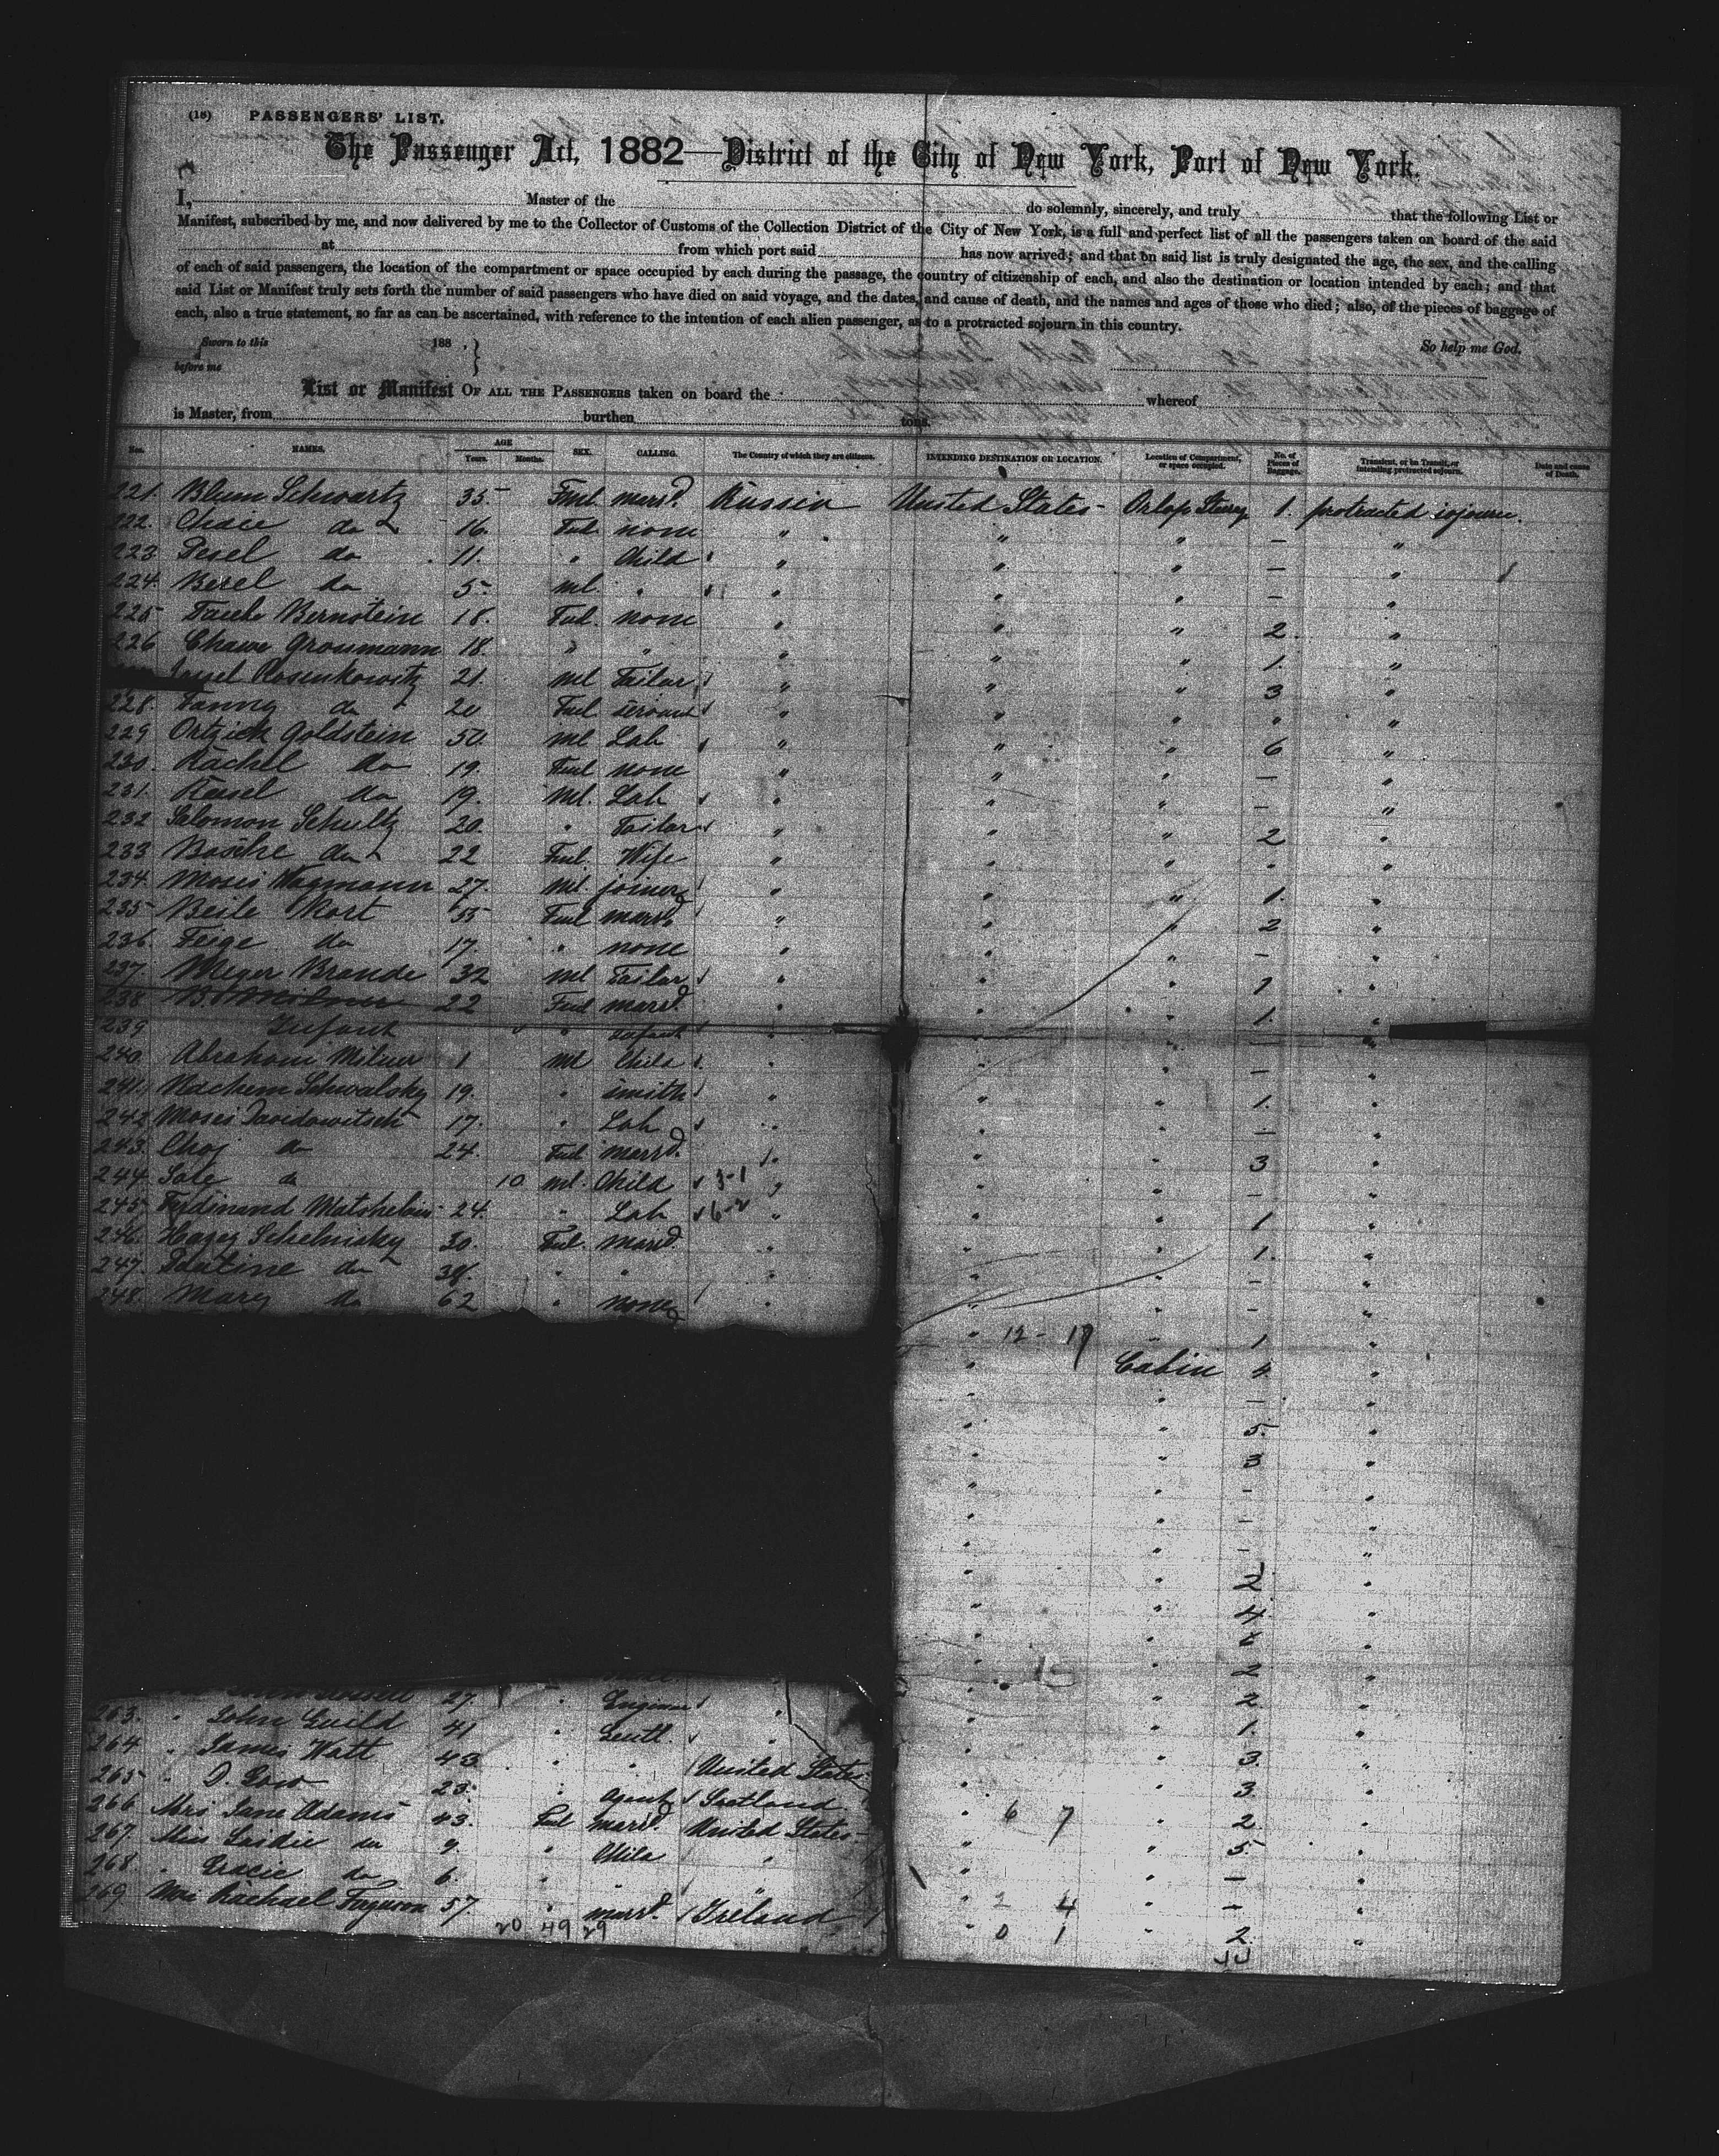 (18) PASSENGERS' LIST.
The Passenger Act, 1882—District of the City of New York, Port of New York.
I, Master of the do solemnly, sincerely, and truly that the following List or
Manifest, subscribed by me, and now delivered by me to the Collector of Customs of the Collection District of the City of New York, is a full and perfect list of all the passengers taken on board of the said
at from which port said has now arrived; and that on said list is truly designated the age, the sex, and the calling
of each of said passengers, the location of the compartment or space occupied by each during the passage, the country of citizenship of each, and also the destination or location intended by each; and that
said List or Manifest truly sets forth the number of said passengers who have died on said voyage, and the dates, and cause of death, and the names and ages of those who died; also, of the pieces of baggage of
each, also a true statement, so far as can be ascertained, with reference to the intention of each alien passenger, as to a protracted sojourn in this country.
Sworn to this 188 , So help me God.
before me
List or Manifest OF ALL THE PASSENGERS taken on board the whereof
is Master, from burthen tons.
Nos. NAMES. AGE Years. Months. SEX. CALLING. The Country of which they are citizens. INTENDING DESTINATION OR LOCATION. Location of Compartment, or space occupied. No. of Pieces of Baggage. Transient, or in Transit, or intending protracted sojourn. Date and cause of Death.
221. Blum Schwartz 35 Feml marrd. Russia United States Orlop Steerg 1. protracted sojourn.
222. Chaie do 16. Feml none " " " — "
223 Pesel do 11. " Child " " " — "
224. Berel do 5 ml " " " " — "
225 Taube Bernstein 18. Feml. none " " " 2. "
226 Chawe Grossmann 18. " " " " " 1. "
Rosenkowitz 21. ml Tailor " " " 3 "
228. Fanny do 20 Feml servant " " " " "
229 Goldstein 50. ml Lab " " " 6 "
230. Rachel do 19. Feml none " " " — "
231. do 19. ml. Lab " " " — "
232 Salomon Schultz 20. " Tailor " " " 2 "
233 Basche do 22 Feml. Wife " " " " "
234. Moses Wagmann 27. ml joiner " " " 1. "
235 Beile Kort 55 Feml marrd. " " " 2 "
236. Feige do 17. " none " " " — "
237. Meyer Brande 32 ml Tailor " " " 1 "
238. Milner 22 Feml marrd. " " " 1. "
239 Infant " Infant " " " — "
240. Abraham Milner 1 ml Child " " " — "
241. Nachem 19. " smith " " " 1. "
242 Moses Davidowitsch 17. " Lab " " " — "
243. do 24. Feml marrd. " " " 3 "
244. do 10 ml. Child 3-1 " " " — "
245. Ferdinand 24. " Lab 6-2 " " " 1 "
246. 30. Feml. marrd. " " " 1. "
247. do 38. " " " " " — "
248. Mary do 62 " none " " " — "
" 12 - 17 " 1 "
" Cabin 4 "
" " — "
" " 5. "
" " 3 "
" " — "
" " — "
" " — "
" " 2 "
" " 4 "
" " "
" 15 " 2 "
27. " Engineer " " " 2 "
263. " John Guild 41 " Gentl. " " " 1. "
264. " James Watt 43 " " United States " " 3. "
265 " 23. " Agent Scotland " " 3 "
266 Mrs Jane Adams 43. Feml marrd. United States " 6 7 " 2 "
267. Miss do 9. " Child " " " 5. "
268 " Gracie do 6. " " " " " — "
269 Mrs Rachael Ferguson 57. " marrd. Ireland " 2 4 " — "
20 49 29 " 0 1 " 2. "